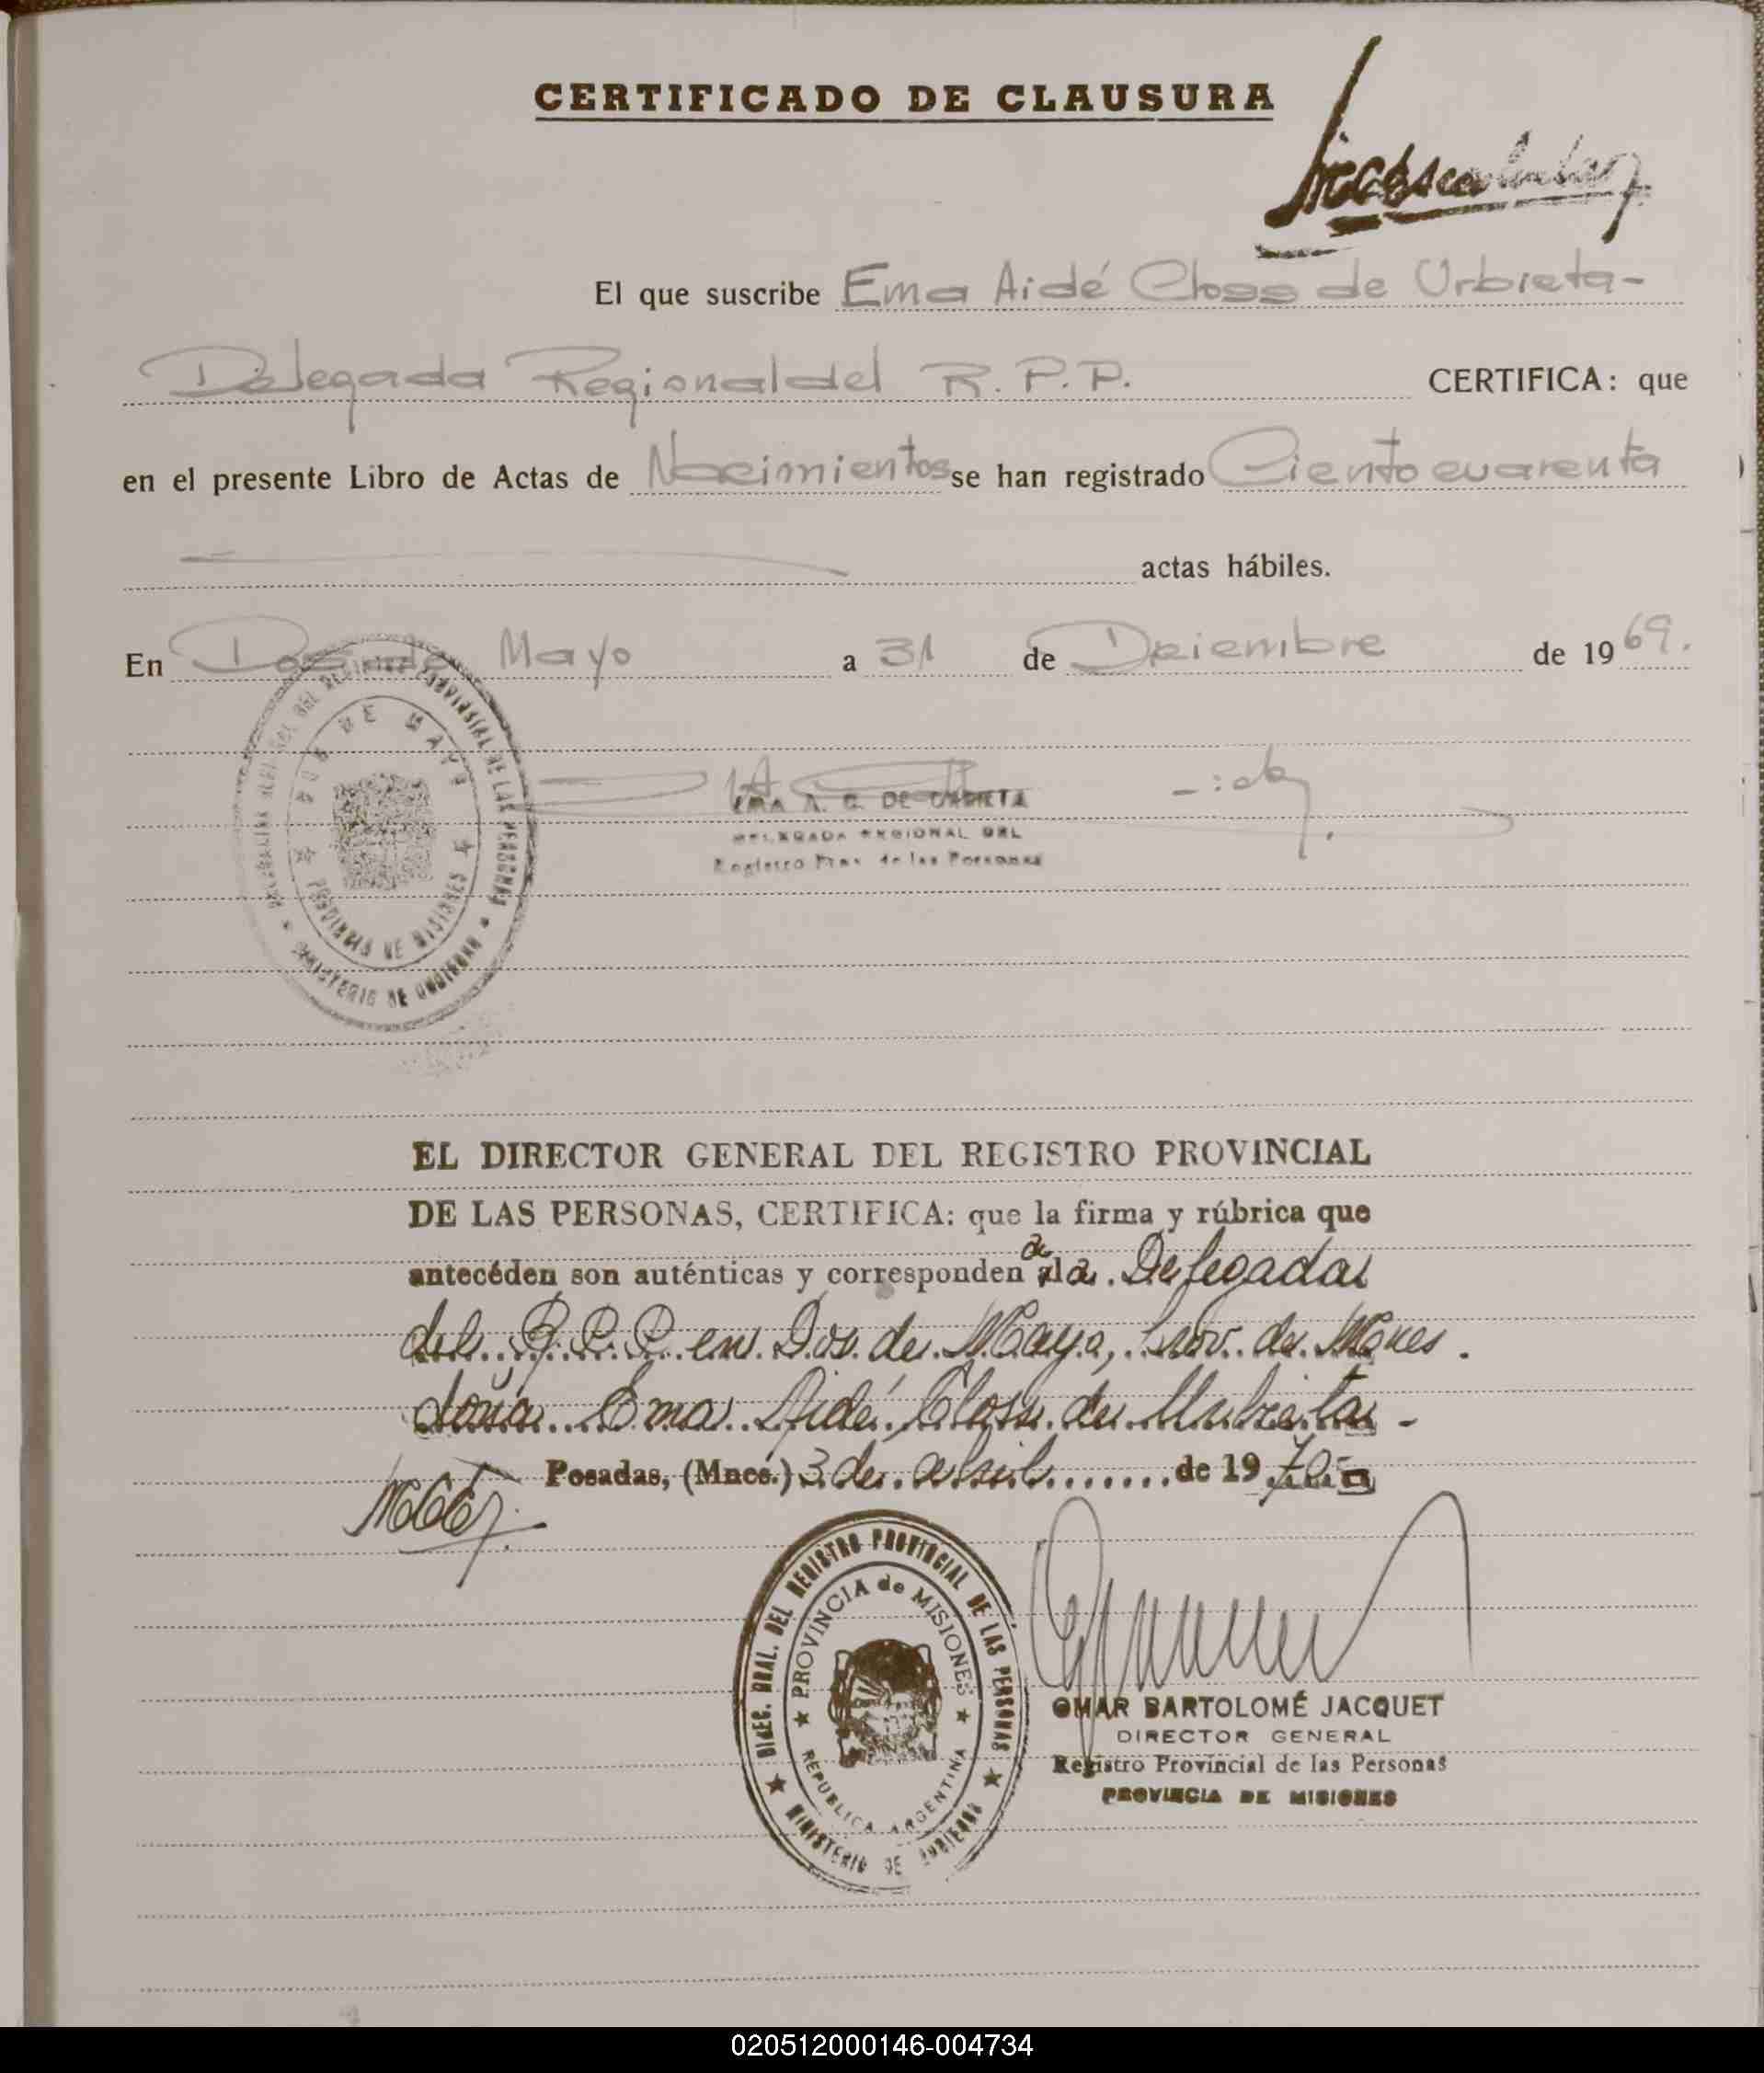 CERTIFICADO DE CLAUSURA
El que suscribe Ema Aidé Closs de Urbieta-
Delegada Regional del R. P. P. CERTIFICA: que
en el presente Libro de Actas de Nacimientos se han registrado Ciento cuarenta
actas hábiles.
En Dos de Mayo a 31 de Diciembre de 1969.
DOS DE MAYO
PROVINCIA DE MISIONES
MINISTERIO DE GOBIERNO
EMA A. C. DE URBIETA
DELEGADA REGIONAL DEL
Registro Prov. de las Personas
EL DIRECTOR GENERAL DEL REGISTRO PROVINCIAL
DE LAS PERSONAS, CERTIFICA: que la firma y rúbrica que
antecéden son auténticas y corresponden a la Delegada
del R.P.P. en Dos de Mayo, Prov. de Mnes.
doña Ema Aidé Closs de Urbieta-
Posadas, (Mnes.) 3 de abril de 1970
DIREC. GRAL. DEL REGISTRO PROVINCIAL DE LAS PERSONAS
PROVINCIA de MISIONES
REPUBLICA ARGENTINA
MINISTERIO DE GOBIERNO
OMAR BARTOLOMÉ JACQUET
DIRECTOR GENERAL
Registro Provincial de las Personas
PROVINCIA DE MISIONES
020512000146-004734